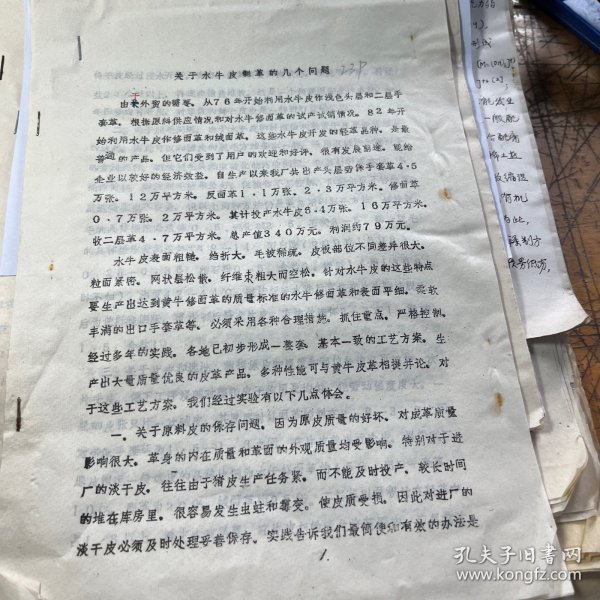 关于水牛皮制革的几个问题
由于外贸的需要。从76年开始利用水牛皮作浅色头层和二层手
套革。根据原料供应情况和对水牛修面革的试产试销情况。82年开
始利用水牛皮作修面革和绒面革。这些水牛皮开发的轻革品种。是最
普通的产品。但它们受到了用户的欢迎和好评。很有发展前途。能给
企业以较好的经济效益。自生产以来我厂共出产头层劳保手套革4·5
万张。12万平方米。反面革1·1万张。2·3万平方米。修面革
0·7万张。2万平方米。其计投产水牛皮6·4万张。16万平方米。
收二层革4·7万平方米。总产值340万元。利润约79万元。
水牛皮表面粗糙。绉折大。毛被稀疏。皮板部位不同差异很大。
粒面紧密。网状层松散。纤维束粗大而空松。针对水牛皮的这些特点
要生产出达到黄牛修面革的质量标准的水牛修面革和表面平细。柔软
丰满的出口手套革等。必须采用各种合理措施。抓住重点。严格控制。
经过多年的实践。各地已初步形成一整套。基本一致的工艺方案。生
产出大量质量优良的皮革产品。多种性能可与黄牛皮革相提并论。对
于这些工艺方案。我们经过实验有以下几点体会。
一、关于原料皮的保存问题。因为原皮质量的好坏。对成革质量
影响很大。革身的内在质量和革面的外观质量均受影响。特别对于进
厂的淡干皮。往往由于猪皮生产任务紧。而不能及时投产。较长时间
的堆在库房里。很容易发生虫蛀和霉变。使皮质受损。因此对进厂的
淡干皮必须及时处理妥善保存。实践告诉我们最简便和有效的办法是
1.
孔夫子旧书网
www.kongfz.com